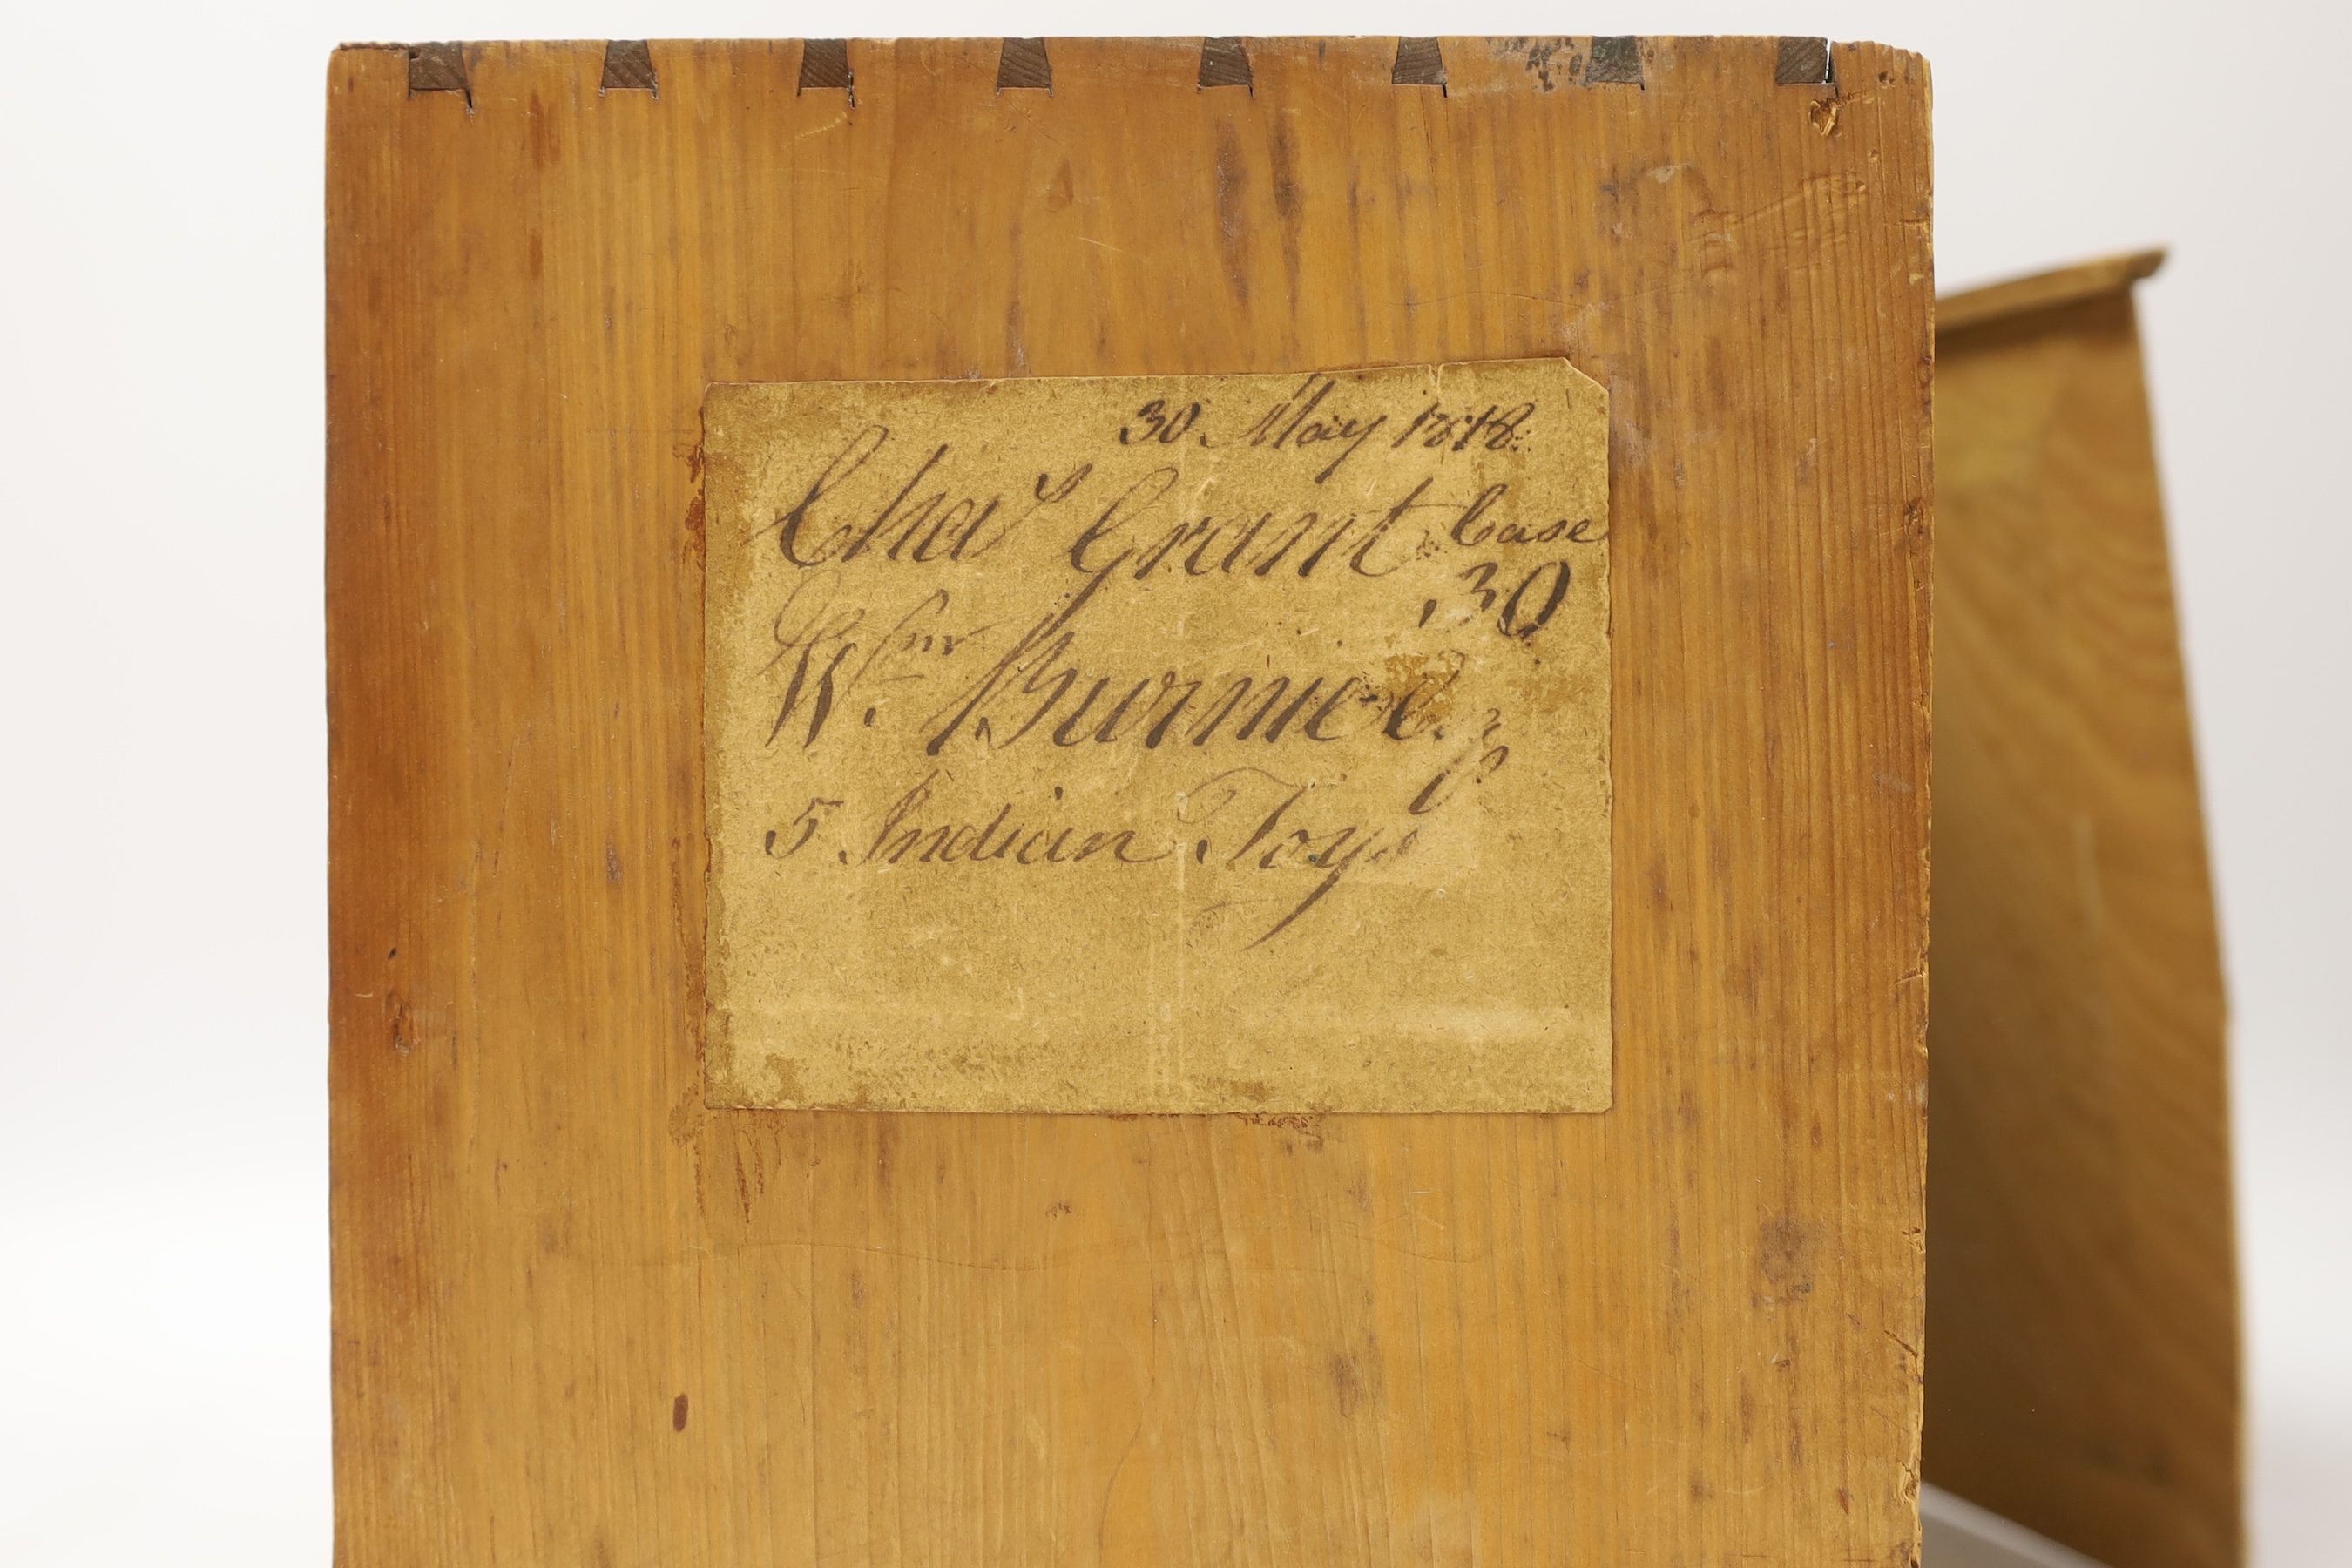 30. May 1818.
Chaˢ Grant Case
30
Wᵐ Burnie
5 Indian Toys